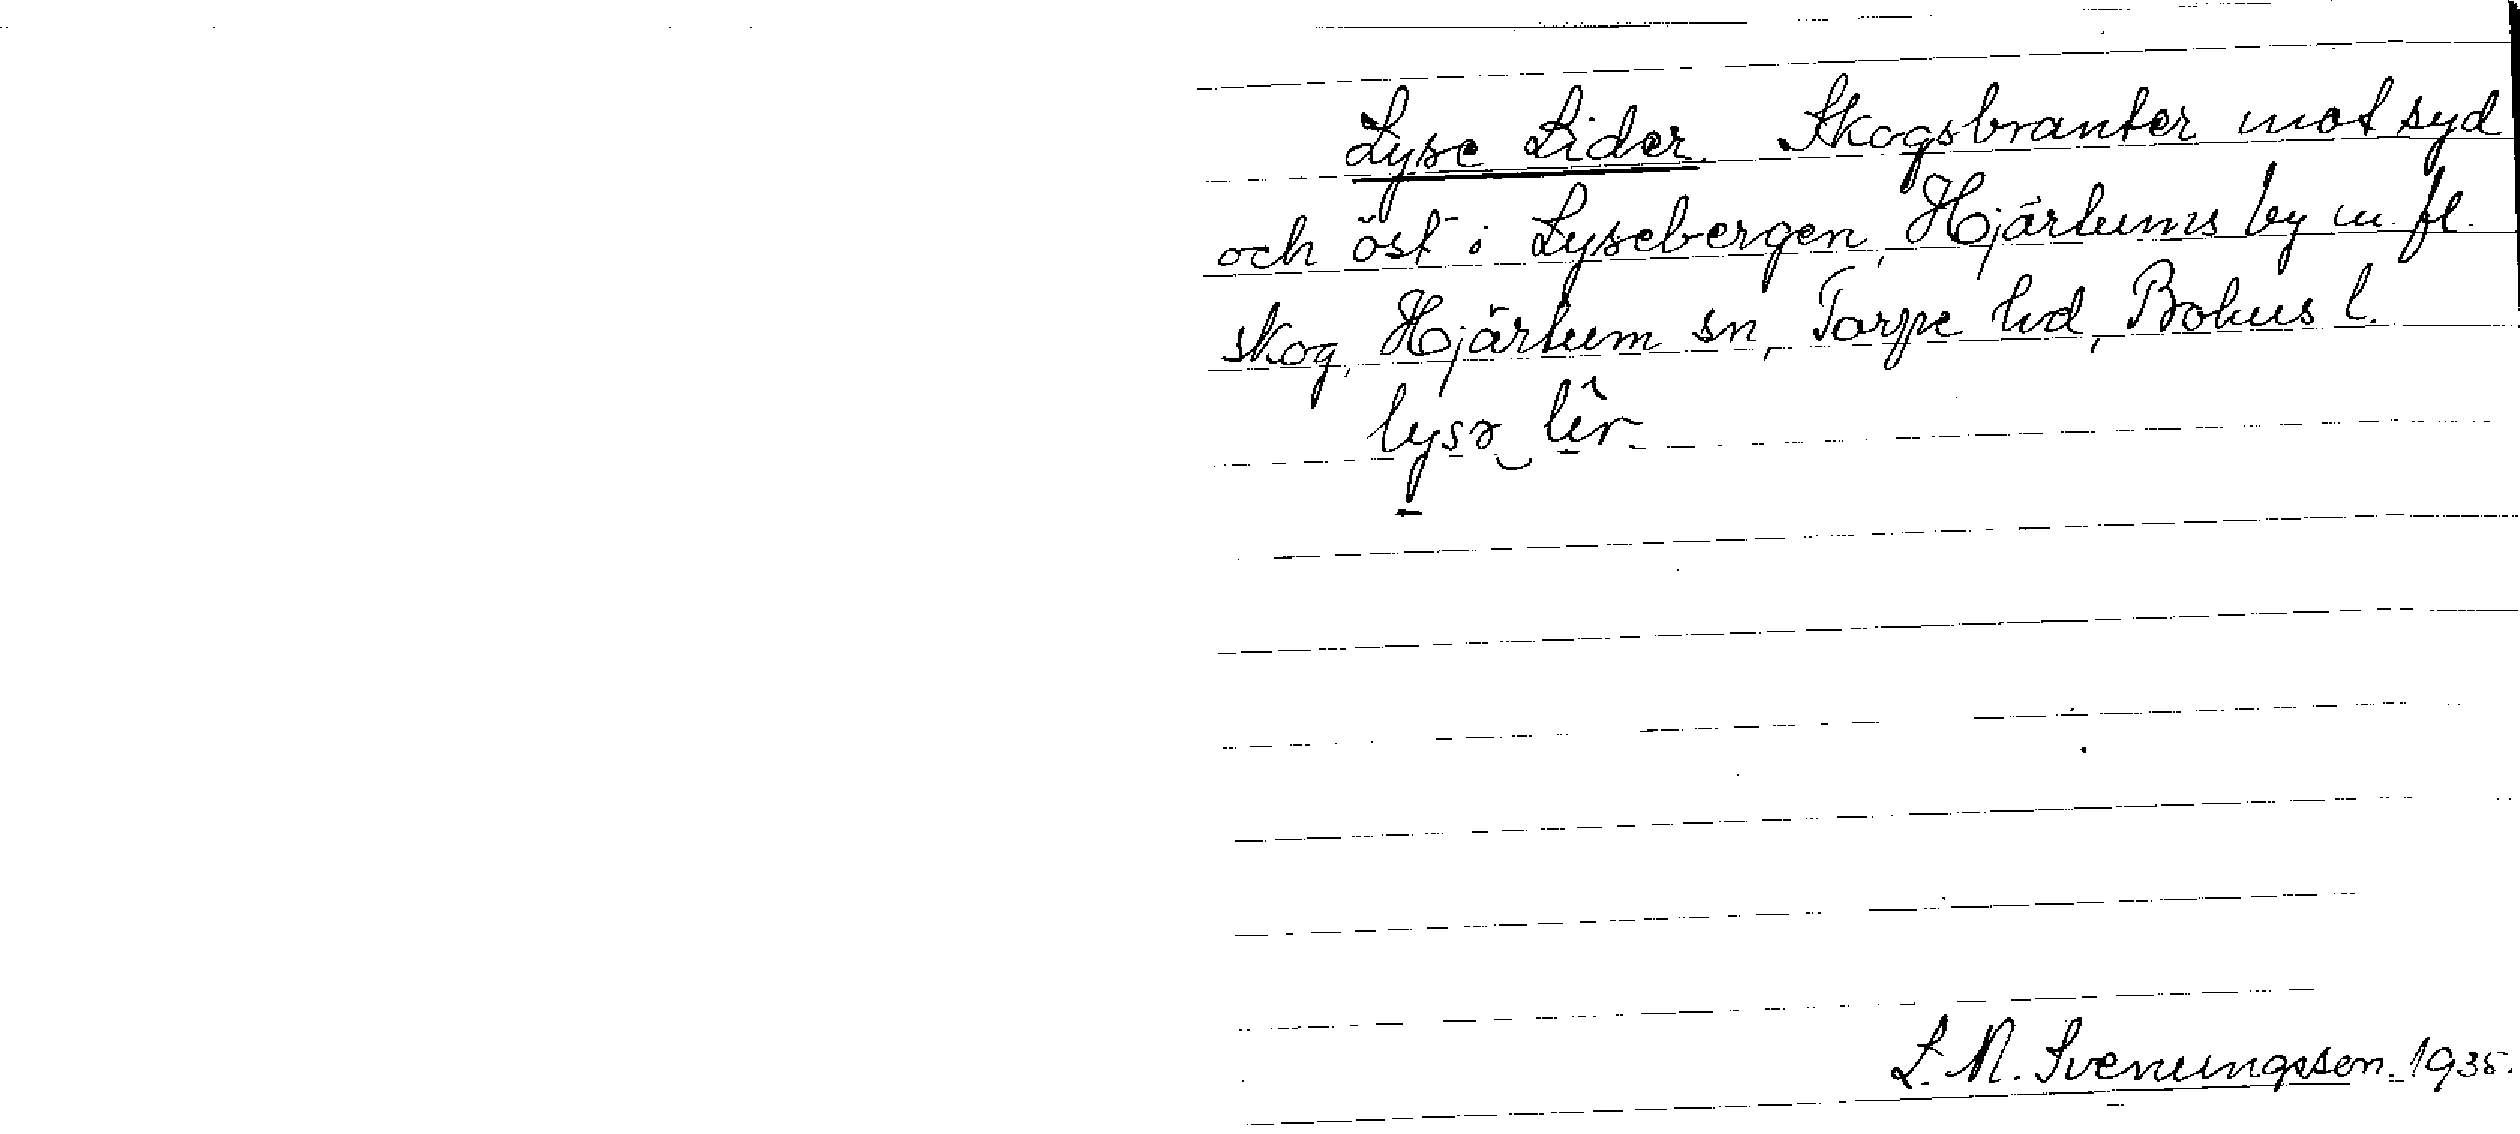 Lyse Lider. Skogsbranter mot syd
och öst i Lysebergen, Hjärtums by m. fl.
skog, Hjärtum sn, Torpe hd, Bohus l.
L. N. Svenungsson. 1935.